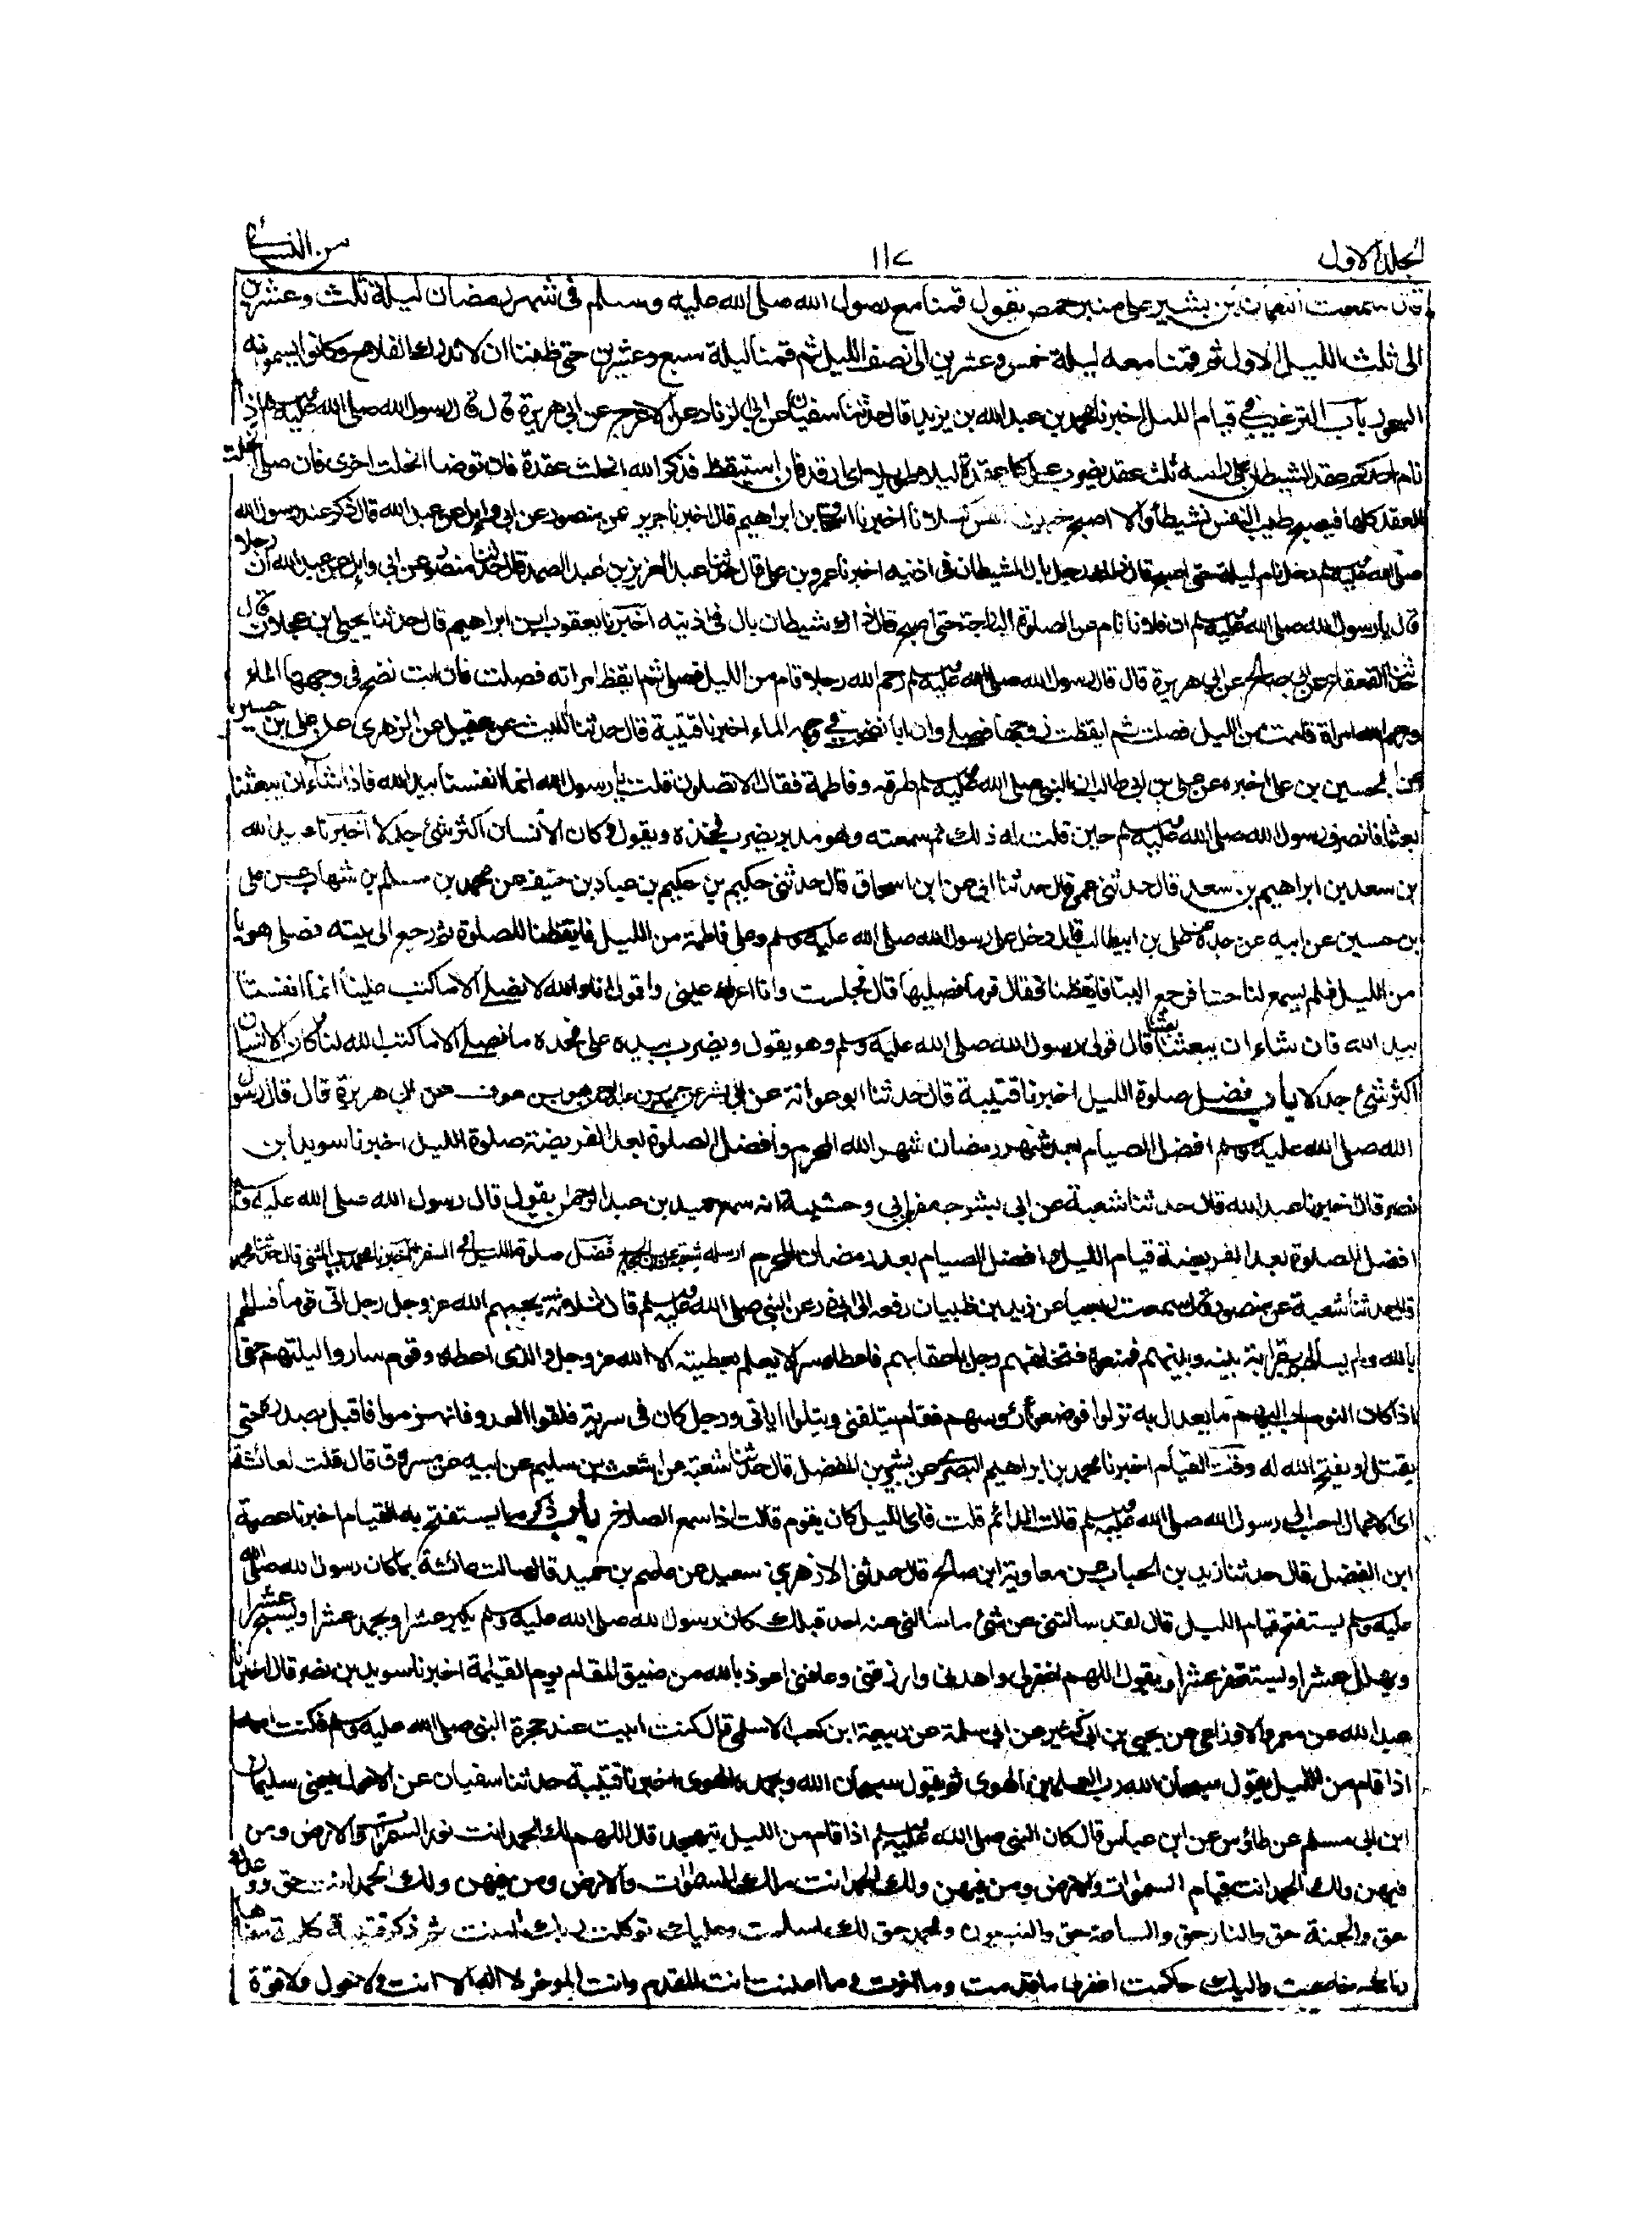 الجلد الاول
١١٧
سنن النسائى
قال سمعت النعمان بن بشير على منبر حمص يقول قمنا مع رسول الله صلى الله عليه وسلم فى شهر رمضان ليلة ثلث وعشرين
الى ثلث الليل الاول ثم قمنا معه ليلة خمس وعشرين الى نصف الليل ثم قمنا ليلة سبع وعشرين حتى ظننا ان لا ندرك الفلاح وكانوا يسمونه
السحور باب الترغيب فى قيام الليل اخبرنا محمد بن عبد الله بن يزيد قال حدثنا سفيان عن ابى الزناد عن الاعرج عن ابى هريرة قال قال رسول الله صلى الله عليه وسلم اذا
نام احدكم عقد الشيطان على راسه ثلث عقد يضرب على كل عقدة ليلا طويلا اى ارقد فان استيقظ فذكر الله انحلت عقدة فان توضا انحلت اخرى فان صلى انحلت
العقد كلها فيصبح طيب النفس نشيطا والا اصبح خبيث النفس كسلانا اخبرنا اسحق بن ابراهيم قال اخبرنا جرير عن منصور عن ابى وائل عن عبد الله قال ذكر عند رسول الله
صلى الله عليه وسلم رجل نام ليلة حتى اصبح قال ذلك رجل بال الشيطان فى اذنيه اخبرنا عمرو بن على قال حدثنا عبد العزيز بن عبد الصمد قال حدثنا منصور عن ابى وائل عن عبد الله ان رجلا
قال يا رسول الله صلى الله عليه وسلم ان فلانا نام عن الصلوة البارحة حتى اصبح قال ذاك شيطان بال فى اذنيه اخبرنا يعقوب ابن ابراهيم قال حدثنا يحيى ابن عجلان قال
حدثنا القعقاع عن ابى صالح عن ابى هريرة قال قال رسول الله صلى الله عليه وسلم رحم الله رجلا قام من الليل فصلى ثم ايقظ امراته فصلت فان ابت نضح فى وجهها الماء
ورحم الله امراة قامت من الليل فصلت ثم ايقظت زوجها فصلى وان ابا نضحت فى وجهه الماء اخبرنا قتيبة قال حدثنا الليث عن عقيل عن الزهرى عن على بن حسين
ان الحسين بن على اخبره عن على بن ابى طالب ان النبى صلى الله عليه وسلم طرقه وفاطمة فقال الا تصلون قلت يا رسول الله انما انفسنا بيد الله فاذا شاء ان يبعثنا
بعثنا فانصرف رسول الله صلى الله عليه وسلم حين قلت له ذلك ثم سمعته وهو مدبر يضرب فخذه ويقول وكان الانسان اكثر شئ جدلا اخبرنا عبيد الله
بن سعد بن ابراهيم بن سعد قال حدثنى عمى قال حدثنا ابى عن ابن اسحاق قال حدثنى حكيم بن حكيم بن عباد بن حنيف عن محمد بن مسلم بن شهاب عن على
بن حسين عن ابيه عن جده على بن ابيطالب قال دخل على رسول الله صلى الله عليه وسلم وعلى فاطمة من الليل فايقظنا للصلوة ثم رجع الى بيته فصلى هويا
من الليل فلم يسمع لنا حسا فرجع الينا فايقظنا فقال قوما فصليا قال فجلست وانا اعرك عينى واقول انا والله لا نصلى الا ما كتب علينا انما انفسنا
بيد الله فان شاء ان يبعثنا بعثنا قال فولى رسول الله صلى الله عليه وسلم وهو يقول ويضرب بيده على فخذه ما نصلى الا ما كتب الله لنا وكان الانسان
اكثر شئ جدلا باب فضل صلوة الليل اخبرنا قتيبة قال حدثنا ابو عوانة عن ابى بشر عن حميد بن عبد الرحمن هو بن عوف عن ابى هريرة قال قال رسول
الله صلى الله عليه وسلم افضل الصيام بعد شهر رمضان شهر الله المحرم وافضل الصلوة بعد الفريضة صلوة الليل اخبرنا سويد بن
نصر قال اخبرنا عبد الله قال حدثنا شعبة عن ابى بشر جعفر ابى وحشية انه سمع حميد بن عبد الرحمن يقول قال رسول الله صلى الله عليه وسلم
افضل الصلوة بعد الفريضة قيام الليل وافضل الصيام بعد رمضان المحرم ارسله شعبة بن الحجاج فضل صلوة الليل فى السفر اخبرنا محمد بن المثنى قال حدثنا محمد
قال حدثنا شعبة عن منصور قال سمعت ربعيا عن زيد بن ظبيان رفعه الى ابى ذر عن النبى صلى الله عليه وسلم قال ثلاثة يحبهم الله عز وجل رجل اتى قوما فسالهم
بالله ولم يسالهم بقرابة بينه وبينهم فمنعوه فتخلفهم رجل باعقابهم فاعطاه سرا لا يعلم بعطيته الا الله عز وجل والذى اعطاه وقوم ساروا ليلتهم حتى
اذا كان النوم احب اليهم مما يعدل به نزلوا فوضعوا رؤسهم فقام يتملقنى ويتلوا اياتى ورجل كان فى سرية فلقوا العدو فانهزموا فاقبل بصدره حتى
يقتل او يفتح الله له وقت القيام اخبرنا محمد بن ابراهيم البصرى عن بشر بن المفضل قال حدثنا شعبة عن اشعث بن سليم عن ابيه عن مسروق قال قلت لعائشة
اى الاعمال احب الى رسول الله صلى الله عليه وسلم قالت الدائم قلت فاى الليل كان يقوم قالت اذا سمع الصارخ باب ذكر ما يستفتح به القيام اخبرنا عصمة
ابن الفضل قال حدثنا زيد بن الحباب عن معاوية ابن صالح قال حدثنى الازهر بن سعيد عن عاصم بن حميد قال سالت عائشة بما كان رسول الله صلى الله
عليه وسلم يستفتح قيام الليل قال لقد سالتنى عن شئ ما سالنى عنه احد قبلك كان رسول الله صلى الله عليه وسلم يكبر عشرا ويحمد عشرا ويسبح عشرا
ويهلل عشرا ويستغفر عشرا ويقول اللهم اغفر لى واهدنى وارزقنى وعافنى اعوذ بالله من ضيق المقام يوم القيمة اخبرنا سويد بن نصر قال اخبرنا
عبد الله عن معمر والاوزاعى عن يحيى بن ابى كثير عن ابى سلمة عن ربيعة ابن كعب الاسلمى قال كنت ابيت عند حجرة النبى صلى الله عليه وسلم فكنت اسمعه
اذا قام من الليل يقول سبحان الله رب العلمين الهوى ثم يقول سبحان الله وبحمده الهوى اخبرنا قتيبة حدثنا سفيان عن الاحول يعنى سليمان
ابن ابى مسلم عن طاؤس عن ابن عباس قال كان النبى صلى الله عليه وسلم اذا قام من الليل يتهجد قال اللهم لك الحمد انت نور السموات والارض ومن
فيهن ولك الحمد انت قيام السموات والارض ومن فيهن ولك الحمد انت ملك السموات والارض ومن فيهن ولك الحمد انت حق ووعدك
حق والجنة حق والنار حق والساعة حق والنبيون حق ومحمد حق لك اسلمت وعليك توكلت وبك امنت ثم ذكر قتيبة كلمة معناها
وبك خاصمت واليك حاكمت اغفر لى ما قدمت وما اخرت وما اعلنت انت المقدم وانت الموخر لا اله الا انت ولا حول ولا قوة